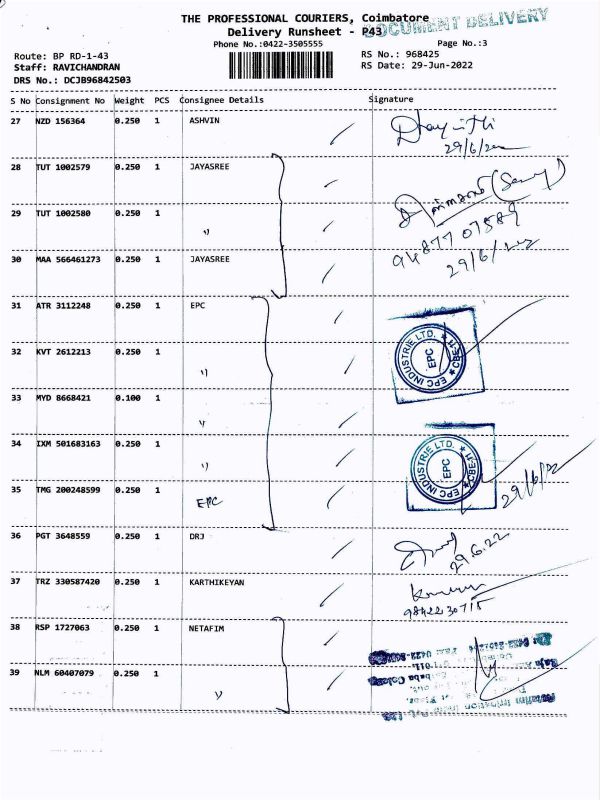 THE PROFESSIONAL COURIERS, Coimbatore
DOCUMENT DELIVERY
Delivery Runsheet - P43
Phone No.:0422-3505555
Page No.:3
Route: BP RD-1-43
RS No.: 968425
Staff: RAVICHANDRAN
RS Date: 29-Jun-2022
DRS No.: DCJB96842503
S No Consignment No Weight PCS Consignee Details Signature
27 NZD 156364 0.250 1 ASHVIN
29/6/22
28 TUT 1002579 0.250 1 JAYASREE
29 TUT 1002580 0.250 1 〃
9487707589
30 MAA 566461273 0.250 1 JAYASREE
29/6/22
31 ATR 3112248 0.250 1 EPC
EPC INDUSTRIE LTD. ★ CBE-11 ★
EPC
32 KVT 2612213 0.250 1 〃
33 MYD 8668421 0.100 1 〃
34 IXM 501683163 0.250 1 〃
EPC INDUSTRIE LTD. ★ CBE-11 ★
EPC
35 TMG 200248599 0.250 1 EPC
29/6/22
36 PGT 3648559 0.250 1 DRJ
29.6.22
37 TRZ 330587420 0.250 1 KARTHIKEYAN
9842230715
38 RSP 1727063 0.250 1 NETAFIM
39 NLM 60407079 0.250 1 〃